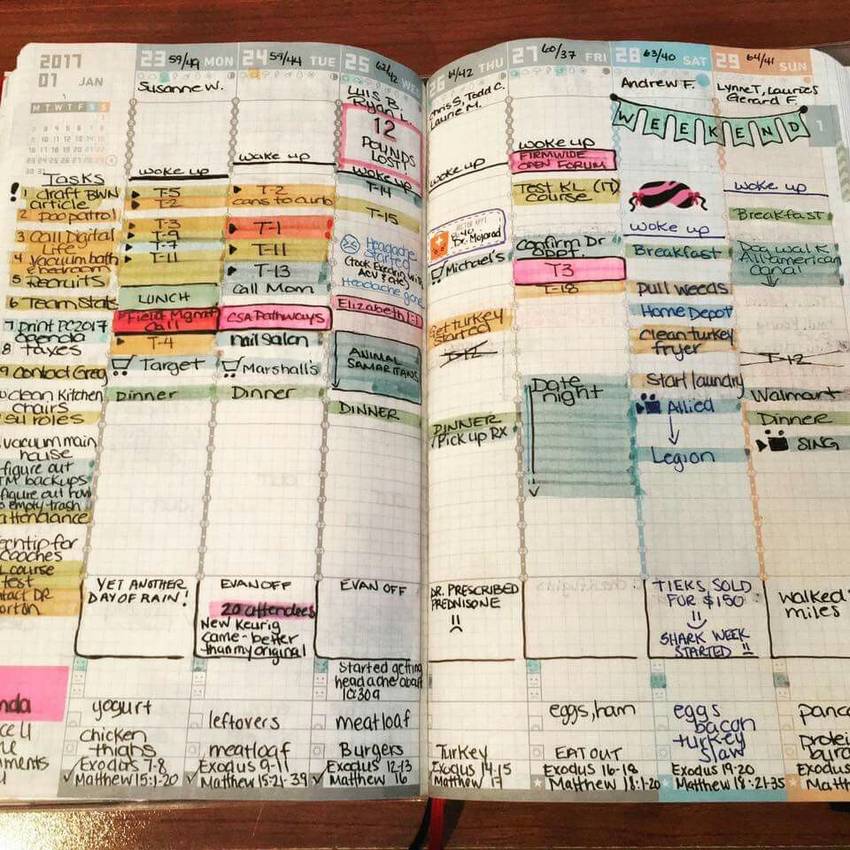 2017
01 JAN
M T W T F S S
Tasks
! 1 draft BWN
article
2 Poo patrol
3 Call Digital
Life
4 vacuum bath
& bedroom
5 Recruits
6 Team Stats
7 print PC2017
agenda
8 taxes
9 Contact Greg
clean kitchen
chairs
SU roles
vacuum main
house
figure out
TM backups
figure out how
to empty trash
attendance
techtip for
coaches
course
test
contact DR
nda
23 59/49 MON
Susanne W.
woke up
T-5
T-2
T-3
T-9
T-7
T-11
LUNCH
Field Mgmt
Call
T-4
Target
Dinner
YET ANOTHER
DAY OF RAIN!
yogurt
chicken
thighs
Exodus 7-8
Matthew 15:1-20
24 59/44 TUE
woke up
T-2
cans to curb
T-1
T-11
T-13
call Mom
CSA Pathways
nail salon
Marshall's
Dinner
EVAN OFF
20 attendees
New Keurig
came - better
than my original
leftovers
meatloaf
Exodus 9-11
Matthew 15:21-39
25 62/42 WED
Luis B.
Ryan L.
12
POUNDS
LOST!
woke up
T-14
T-15
Headache
started
Headache gone
Elizabeth 1:1
ANIMAL
SAMARITANS
DINNER
EVAN OFF
Started getting
headache about
10:30a
meatloaf
Burgers
Exodus 12-13
Matthew 16
26 61/42 THU
Chris S, Todd C.
Laurie M.
woke up
Dr. Mojarad
Michael's
Get turkey
started
T-12
DINNER
Pick up RX
DR. PRESCRIBED
PREDNISONE
Turkey
Exodus 14-15
Matthew 17
27 60/37 FRI
woke up
FIRMWIDE
OPEN FORUM
Test KL (IT)
course
Confirm Dr
appt.
T3
T-18
Date
night
eggs, ham
EAT OUT
Exodus 16-18
Matthew 18:1-20
28 63/40 SAT
Andrew F.
WEEKEND
woke up
Breakfast
pull weeds
Home Depot
Clean turkey
fryer
Start laundry
Allied
Legion
TIEKS SOLD
FOR $150
SHARK WEEK
STARTED
eggs
bacon
turkey
slaw
Exodus 19-20
Matthew 18:21-35
29 64/41 SUN
Lynne T, Laurie S
Gerard F.
1
woke up
Breakfast
Dog walk
All-american
canal
T-12
Walmart
Dinner
SING
walked
miles
Exodus